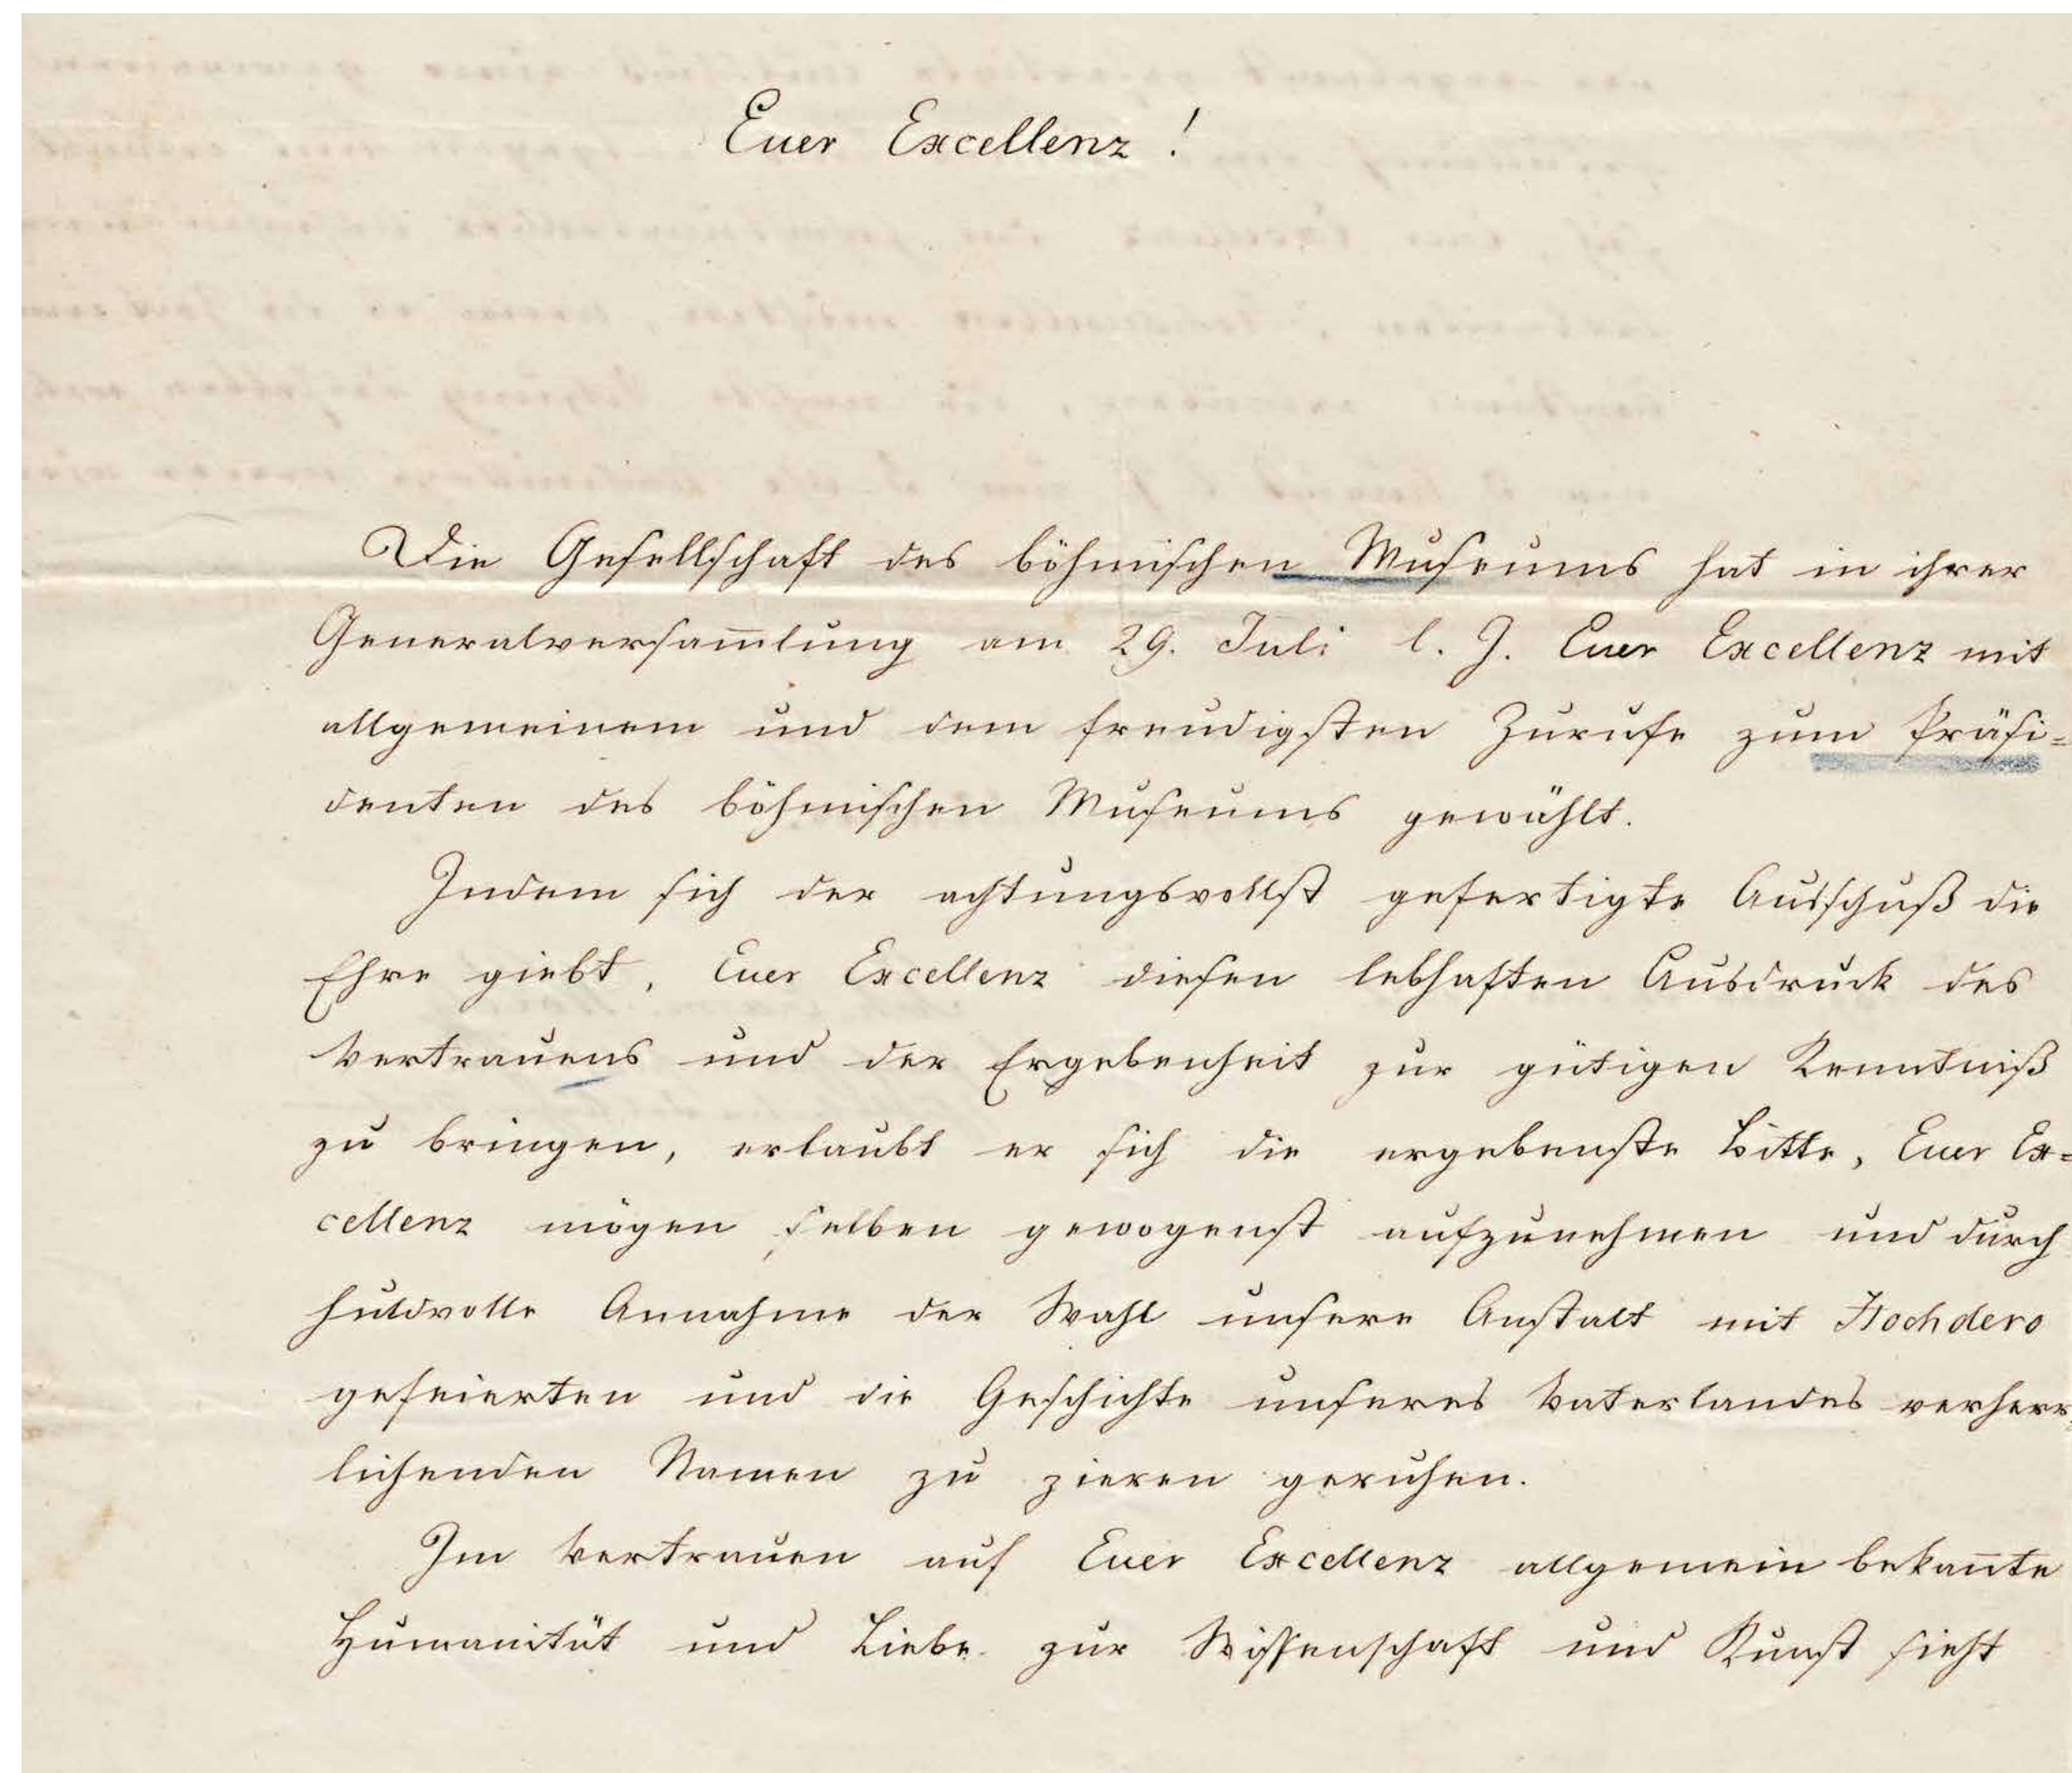 Euer Excellenz!
Die Gesellschaft des böhmischen Museums hat in ihrer
Generalversam̄lung am 29. Juli l. J. Euer Excellenz mit
allgemeinem und dem freudigsten Zurufe zum Präsi=
denten des böhmischen Museums gewählt.
Indem sich der achtungsvollst gefertigte Ausschuß die
Ehre giebt, Euer Excellenz diesen lebhaften Ausdruck des
Vertrauens und der Ergebenheit zur gütigen Kenntniß
zu bringen, erlaubt er sich die ergebenste Bitte, Euer Ex=
cellenz mögen selben gewogenst aufzunehmen und durch
huldvolle Annahme der Wahl unsere Anstalt mit Hochdero
gefeierten und die Geschichte unseres Vaterlandes verherr
lichenden Namen zu zieren geruhen.
Im Vertrauen auf Euer Excellenz allgemein bekan̄te
Humanität und Liebe zur Wissenschaft und Kunst sieht